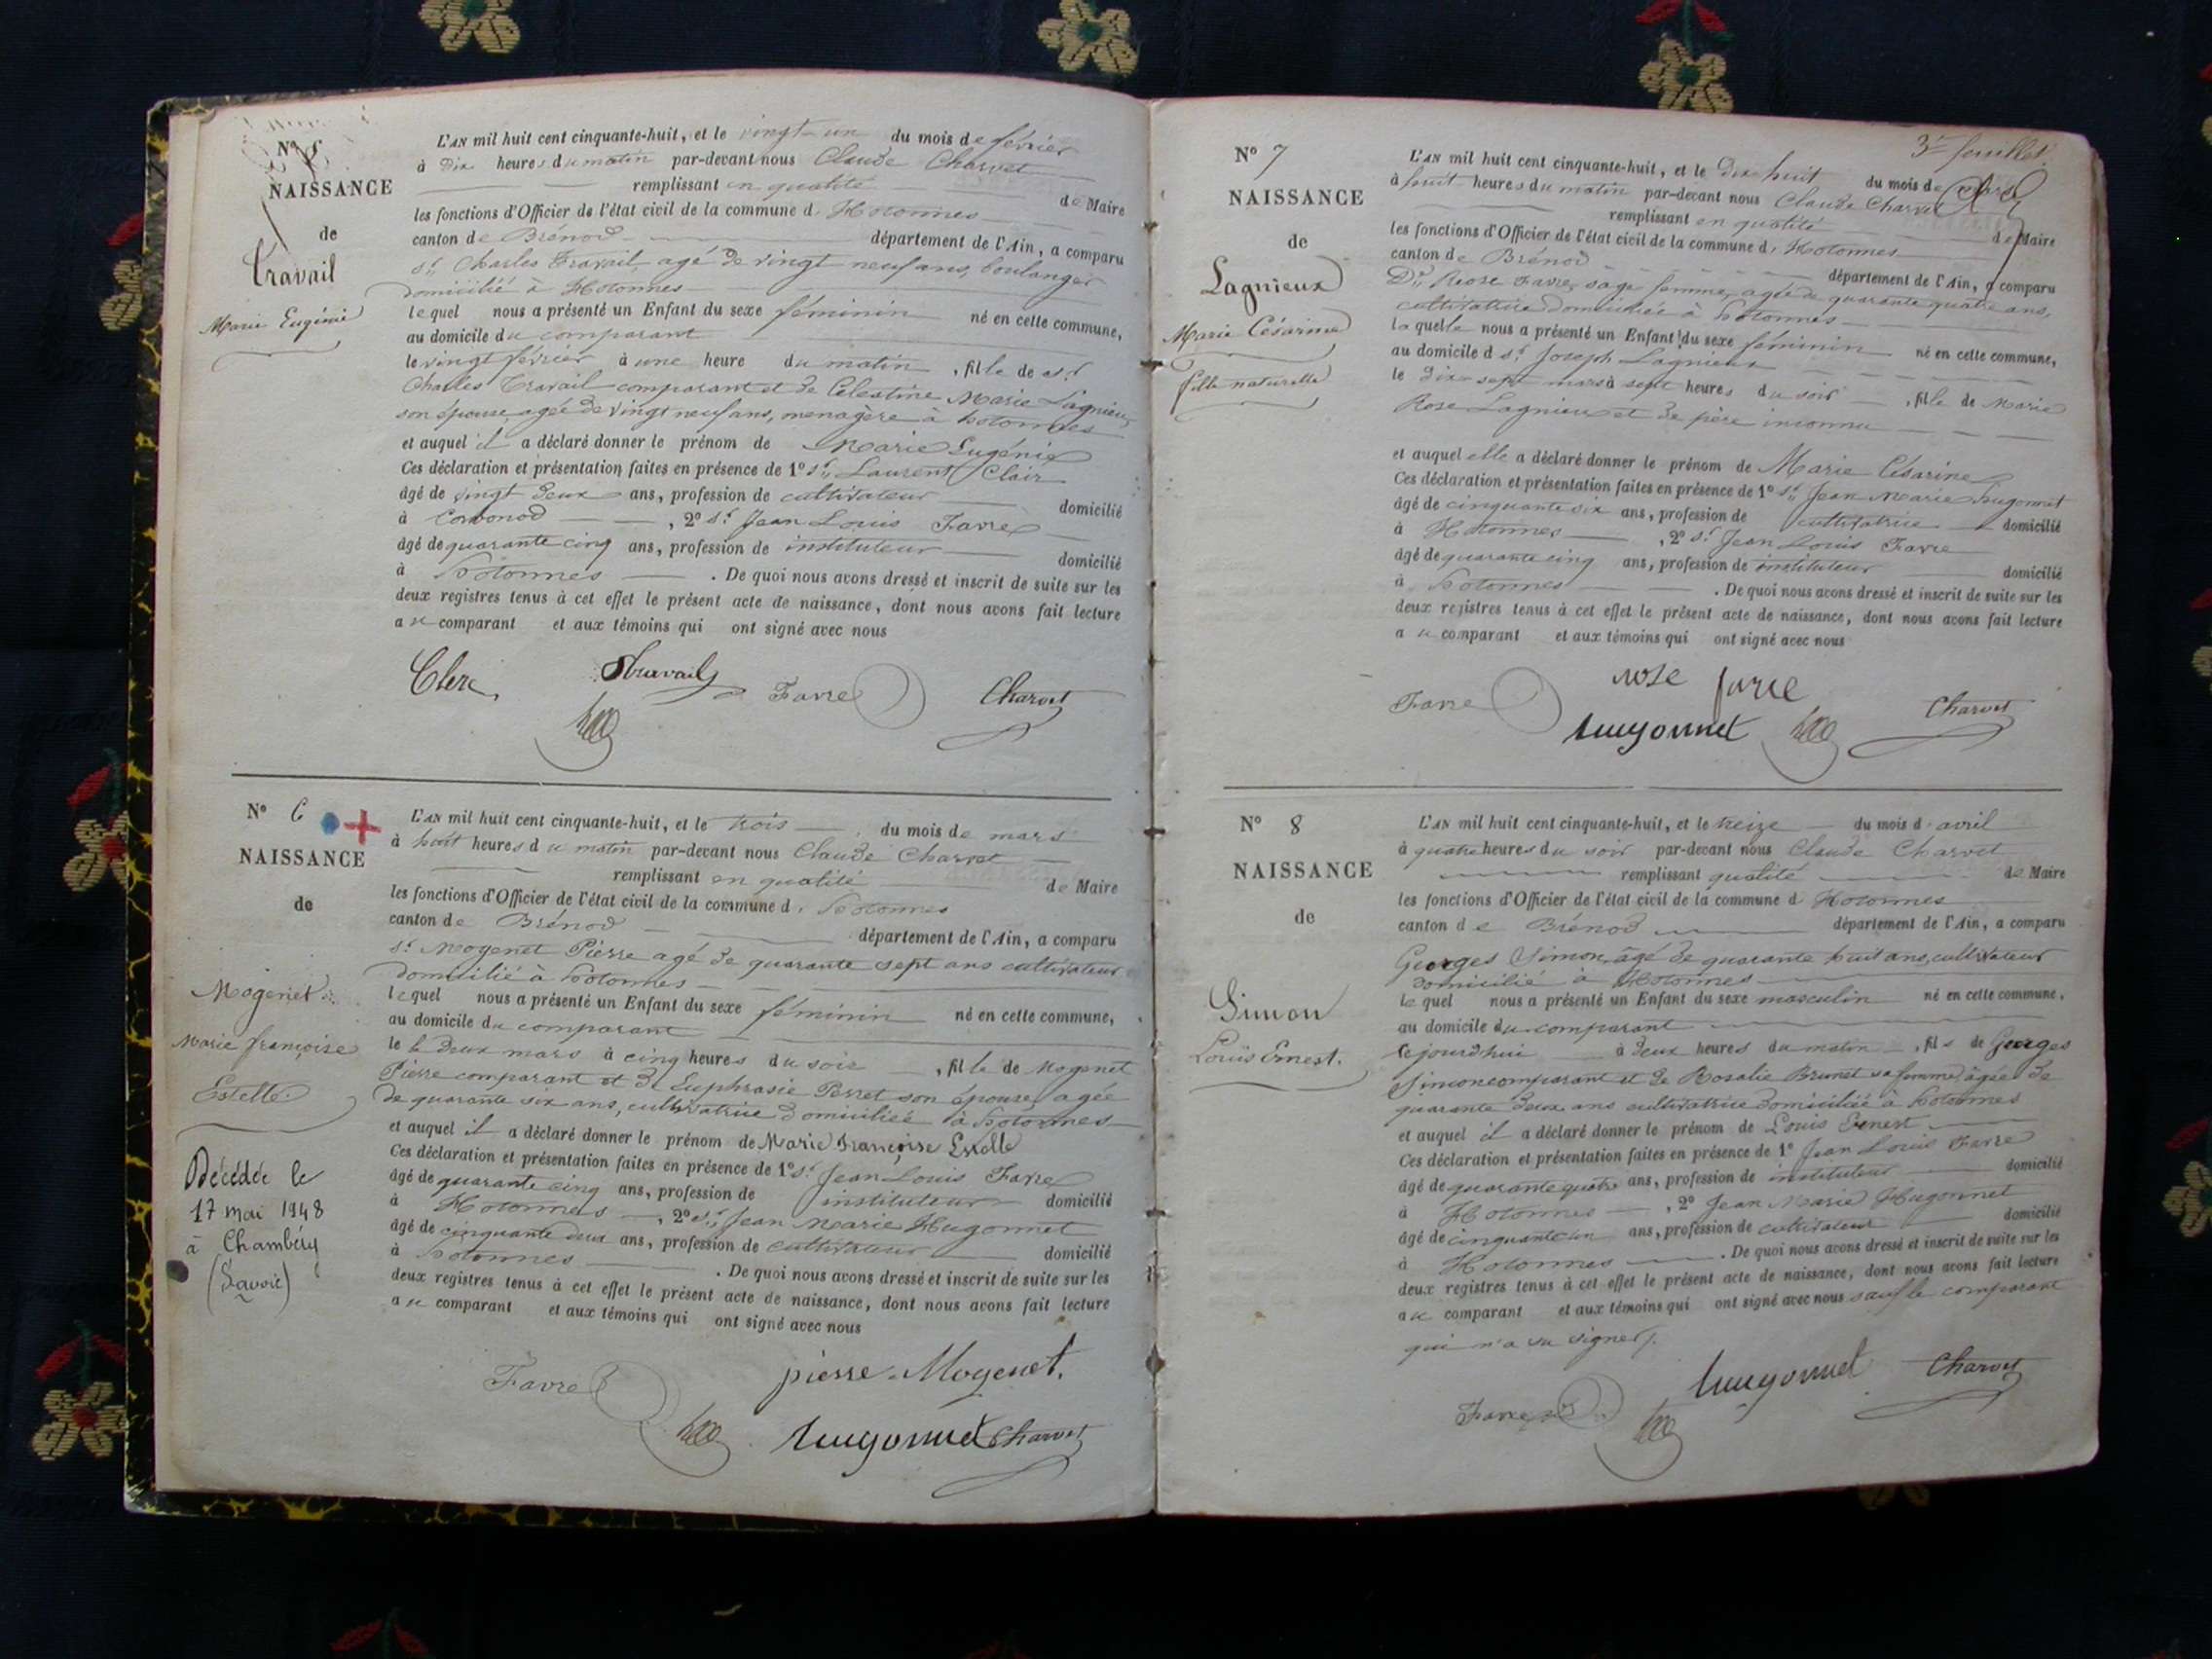 N° 5
NAISSANCE
de
Travail
Marie Eugénie
L'AN mil huit cent cinquante-huit, et le vingt-un du mois de février
à Dix heures du matin par-devant nous Claude Charvet
remplissant en qualité de Maire
les fonctions d'Officier de l'état civil de la commune d' Hotonnes
canton de Brénod département de l'Ain, a comparu
sr Charles Travail, agé de vingt neuf ans, boulanger
domicilié à Hotonnes
lequel nous a présenté un Enfant du sexe féminin né en cette commune,
au domicile du comparant
le vingt février à une heure du matin, fille de sr
Charles Travail comparant et de Célestine Marie Lagnieux
son épouse, agée de vingt neuf ans, menagère à hotonnes
et auquel il a déclaré donner le prénom de Marie Eugénie
Ces déclaration et présentation faites en présence de 1° sr Laurent Clair
âgé de vingt deux ans, profession de cultivateur domicilié
à , 2° sr Jean Louis Favre
âgé de quarante cinq ans, profession de instituteur domicilié
à hotonnes . De quoi nous avons dressé et inscrit de suite sur les
deux registres tenus à cet effet le présent acte de naissance, dont nous avons fait lecture
au comparant et aux témoins qui ont signé avec nous
Clerc Travail Favre Charvet
N° 6
NAISSANCE
de
Mogenet
Marie françoise
Estelle.
Décédée le
17 mai 1948
à Chambéry
(Savoie)
L'AN mil huit cent cinquante-huit, et le trois du mois de mars
à huit heures du matin par-devant nous Claude Charvet
remplissant en qualité de Maire
les fonctions d'Officier de l'état civil de la commune d' hotonnes
canton de Brénod département de l'Ain, a comparu
sr Mogenet Pierre agé de quarante sept ans cultivateur
domicilié à hotonnes
lequel nous a présenté un Enfant du sexe féminin né en cette commune,
au domicile du comparant
le deux mars à cinq heures du soir , fille de Mogenet
Pierre comparant et de Euphrasie Perret son épouse agée
de quarante six ans, cultivatrice domiciliée à hotonnes
et auquel il a déclaré donner le prénom de Marie Françoise Estelle
Ces déclaration et présentation faites en présence de 1° sr Jean Louis Favre
âgé de quarante cinq ans, profession de instituteur domicilié
à Hotonnes , 2° sr Jean Marie Hugonnet
âgé de cinquante deux ans, profession de cultivateur domicilié
à hotonnes . De quoi nous avons dressé et inscrit de suite sur les
deux registres tenus à cet effet le présent acte de naissance, dont nous avons fait lecture
au comparant et aux témoins qui ont signé avec nous
Favre pierre Mogenet.
hugonnet Charvet
3e feuillet
N° 7
NAISSANCE
de
Lagnieux
Marie Césarine
fille naturelle
L'AN mil huit cent cinquante-huit, et le Dix huit du mois de mars
à huit heures du matin par-devant nous Claude Charvet
remplissant en qualité de Maire
les fonctions d'Officier de l'état civil de la commune d' Hotonnes
canton de Brénod département de l'Ain, a comparu
De Rose Favre, sage femme, agée de quarante quatre ans,
cultivatrice domiciliée à hotonnes
laquelle nous a présenté un Enfant du sexe féminin né en cette commune,
au domicile d sr Joseph Lagnieux
le Dix sept mars à sept heures du soir , fille de Marie
Rose Lagnieux et de père inconnu
et auquel elle a déclaré donner le prénom de Marie Césarine
Ces déclaration et présentation faites en présence de 1° sr Jean Marie hugonnet
âgé de cinquante six ans, profession de cultivatrice domicilié
à Hotonnes , 2° sr Jean Louis Favre
âgé de quarante cinq ans, profession de instituteur domicilié
à hotonnes . De quoi nous avons dressé et inscrit de suite sur les
deux registres tenus à cet effet le présent acte de naissance, dont nous avons fait lecture
au comparant et aux témoins qui ont signé avec nous
Favre rose favre
hugonnet Charvet
N° 8
NAISSANCE
de
Simon
Louis Ernest.
L'AN mil huit cent cinquante-huit, et le treize du mois d'avril
à quatre heures du soir par-devant nous Claude Charvet
remplissant qualité de Maire
les fonctions d'Officier de l'état civil de la commune d Hotonnes
canton de Brénod département de l'Ain, a comparu
Georges Simon, âgé de quarante huit ans, cultivateur
domicilié à Hotonnes
lequel nous a présenté un Enfant du sexe masculin né en cette commune,
au domicile du comparant
cejourdhui à deux heures du matin , fils de Georges
Simon comparant et de Rosalie Brunet sa femme, âgée de
quarante deux ans cultivatrice domiciliée à hotonnes
et auquel il a déclaré donner le prénom de Louis Ernest
Ces déclaration et présentation faites en présence de 1° Jean Louis Favre
âgé de quarante quatre ans, profession de instituteur domicilié
à Hotonnes , 2° Jean Marie Hugonnet
âgé de cinquante un ans, profession de cultivateur domicilié
à Hotonnes . De quoi nous avons dressé et inscrit de suite sur les
deux registres tenus à cet effet le présent acte de naissance, dont nous avons fait lecture
au comparant et aux témoins qui ont signé avec nous sauf le comparant
qui n'a su signer.
Favre hugonnet Charvet